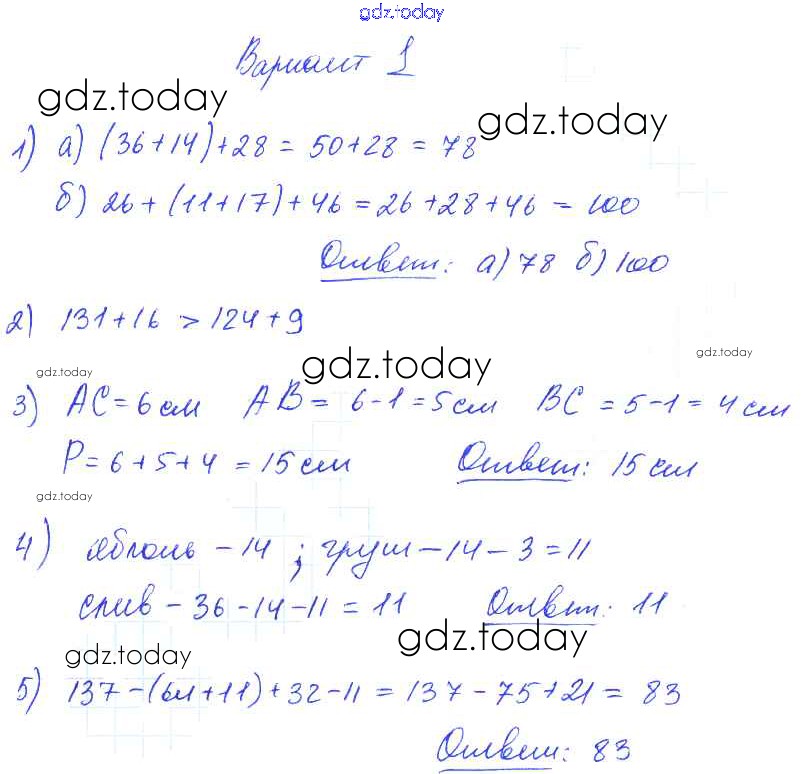 gdz.today
Вариант 1
gdz.today
gdz.today
1) а) (36+14)+28 = 50+28 = 78
б) 26+(11+17)+46 = 26+28+46 = 100
Ответ: а) 78 б) 100
2) 131+16 > 124+9
gdz.today
gdz.today
gdz.today
3) AC = 6 см AB = 6-1 = 5 см BC = 5-1 = 4 см
P = 6+5+4 = 15 см Ответ: 15 см
gdz.today
4) яблонь - 14 ; груш - 14 - 3 = 11
слив - 36 - 14 - 11 = 11 Ответ: 11
gdz.today
gdz.today
5) 137 - (64+11) + 32 - 11 = 137 - 75 + 21 = 83
Ответ: 83